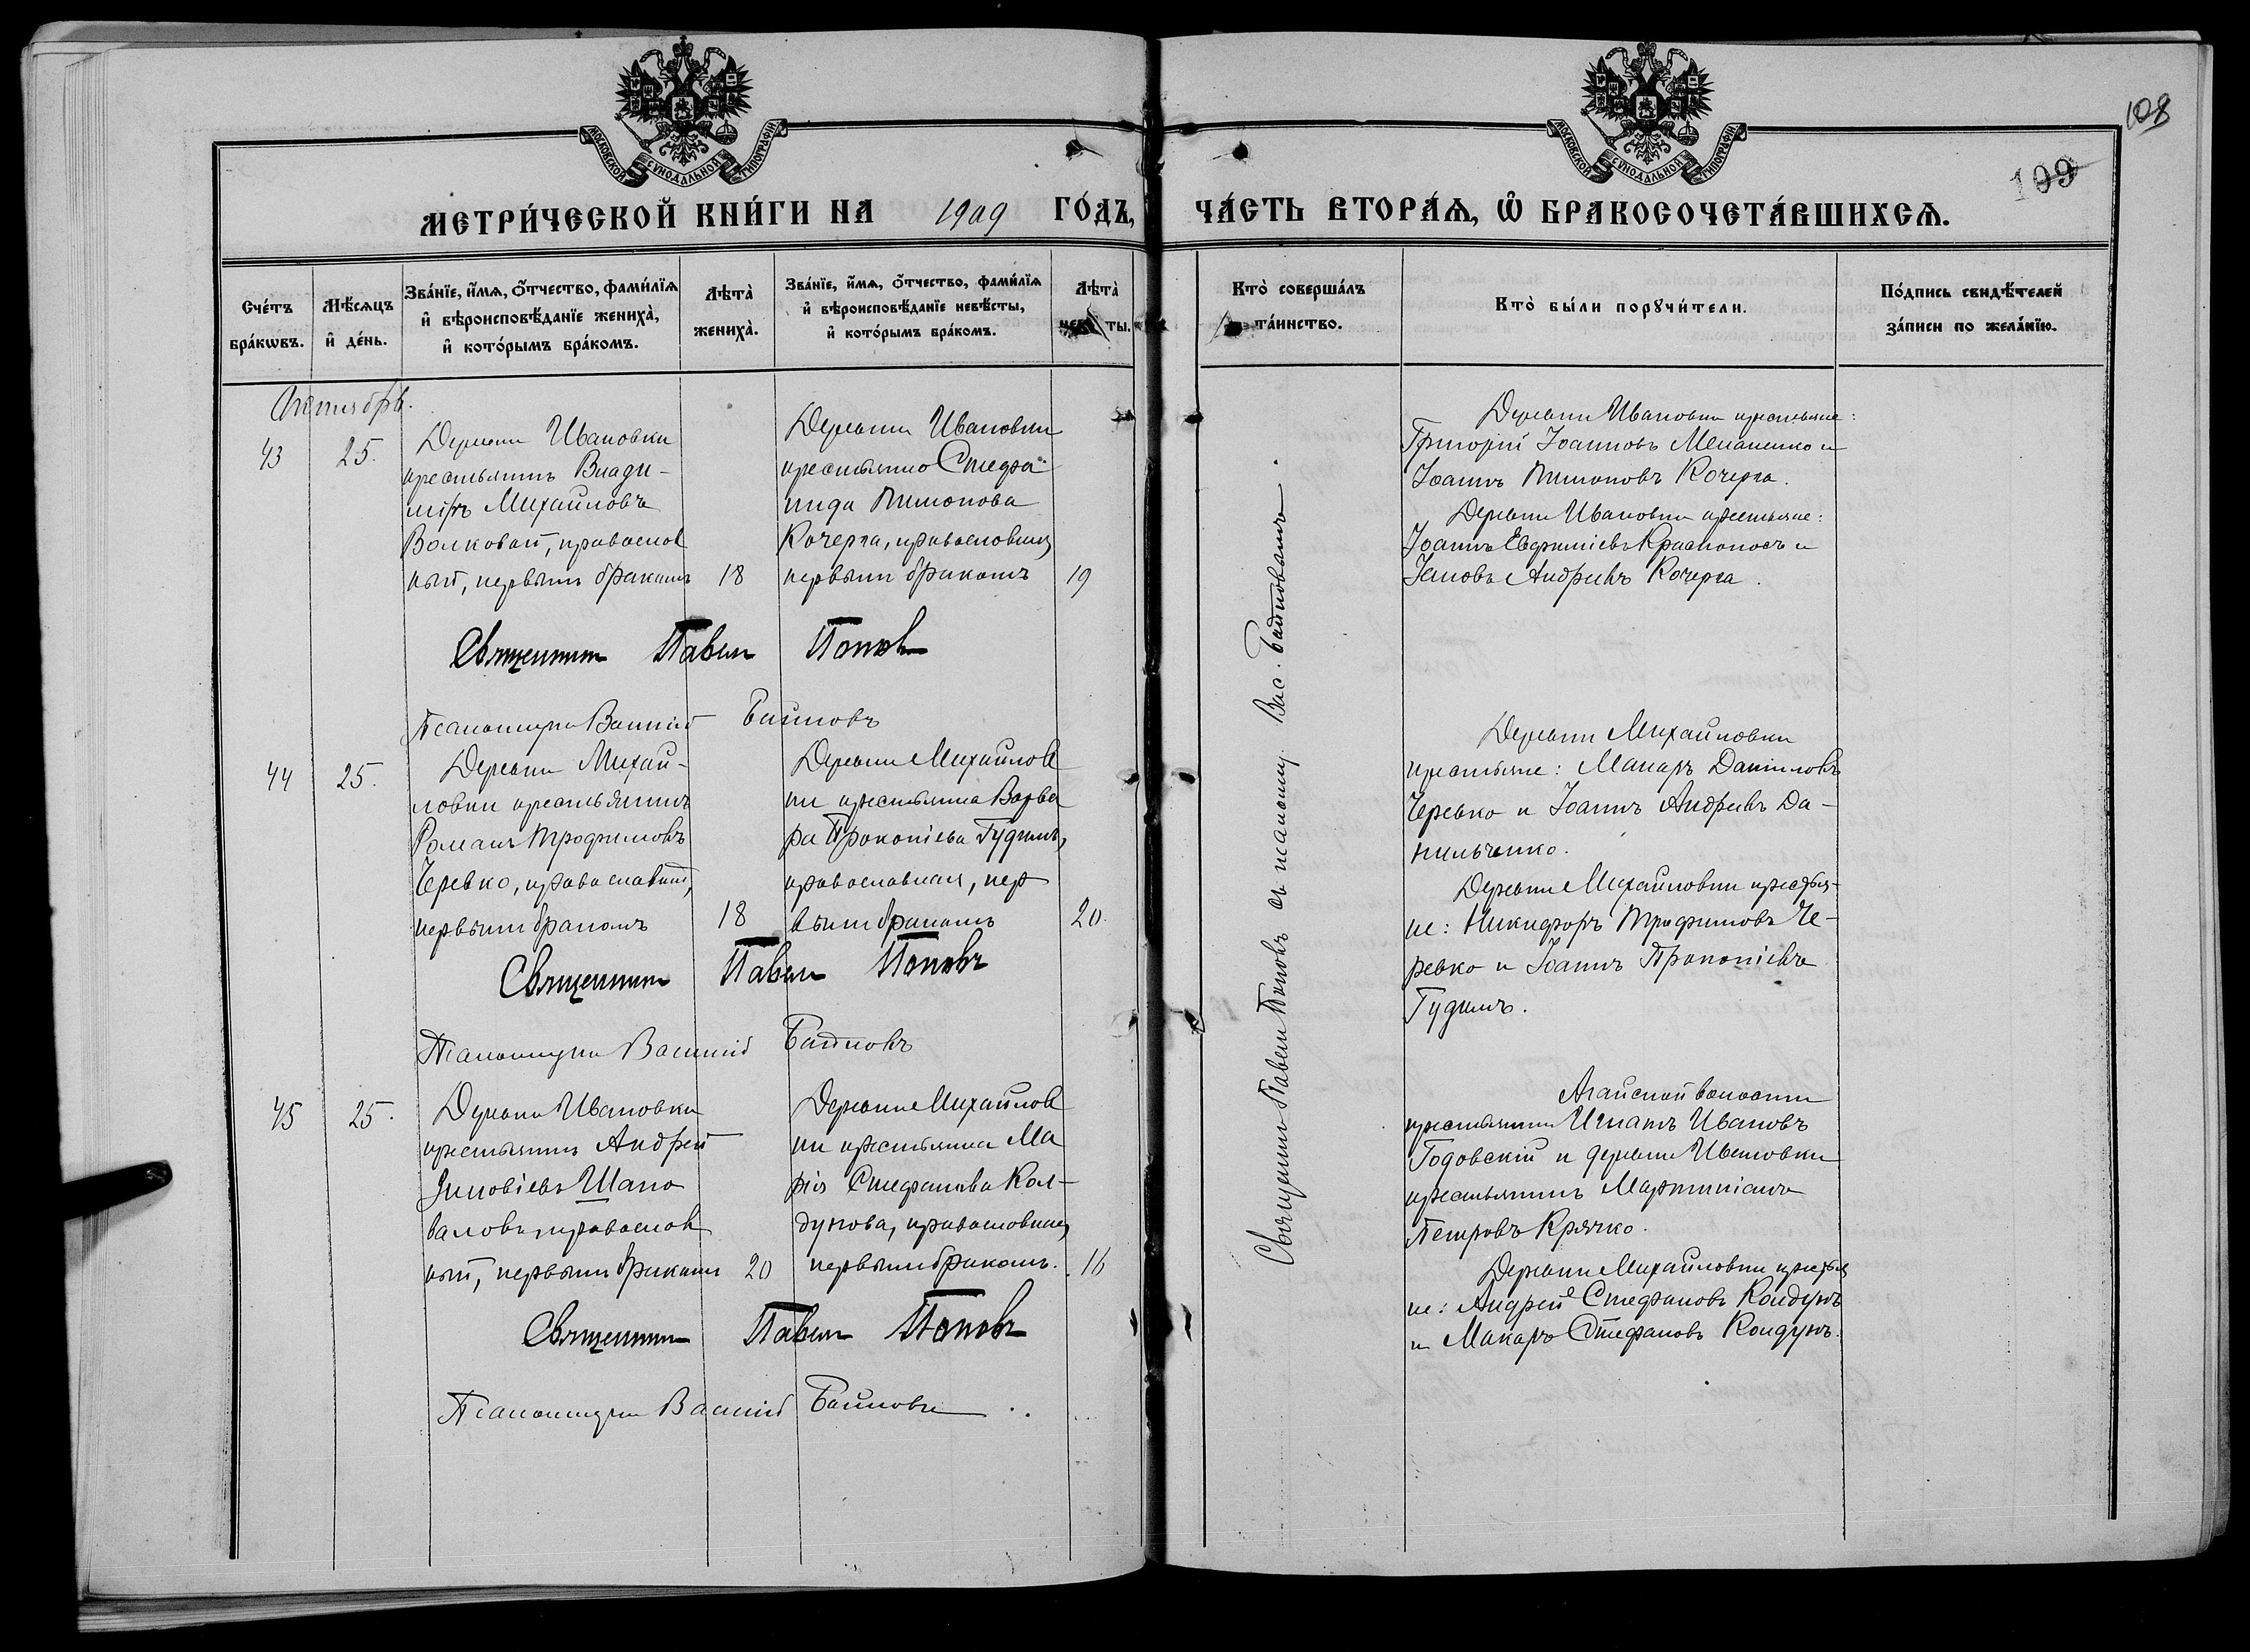 108
109
МОСКОВСКОЙ СѴНОДАЛЬНОЙ ТИПОГРАФІИ
МОСКОВСКОЙ СѴНОДАЛЬНОЙ ТИПОГРАФІИ
МЕТРИ́ЧЕСКОЙ КНИ́ГИ НА 1909 ГО́ДЪ,
ЧА́СТЬ ВТОРА́Ѧ, Ѡ҆ БРАКОСОЧЕТА́ВШИХСѦ.
Сче́тъ
бра́кѡвъ.
Мѣ́сѧцъ
и҆ де́нь.
Зва́нїе, и҆́мѧ, ѻ҆́тчество, фами́лїѧ
и҆ вѣроисповѣ́данїе жениха̀,
и҆ кото́рымъ бра́комъ.
Лѣта̀
жениха̀.
Зва́нїе, и҆́мѧ, ѻ҆́тчество, фами́лїѧ
и҆ вѣроисповѣ́данїе невѣ́сты,
и҆ кото́рымъ бра́комъ.
Лѣта̀
невѣ́сты.
Кто̀ соверша́лъ
та́инство.
Кто̀ бы́ли порꙋчи́тели.
По́дпись свидѣ́телей
за́писи по жела́нїю.
43
25.
Деревни Ивановки
крестьянинъ Влади-
міръ Михайловъ
Волковой, православ
ный, первымъ бракомъ
18
Деревни Ивановки
крестьянка Стефа
нида Пимонова
Кочерга, православная,
первымъ бракомъ
19
Деревни Ивановки крестьяне:
Григорій Іоанновъ и
Іоаннъ Пимоновъ Кочерга.
Деревни Ивановки крестьяне:
Іоаннъ Евфиміевъ Красноносъ и
Іаковъ Андреевъ Кочерга.
Священникъ Павелъ Поповъ
Псаломщикъ Василій Байновъ
44
25.
Деревни Михай-
ловки крестьянинъ
Романъ Трофимовъ
Черевко, православный,
первымъ бракомъ
18
Деревни Михайлов
ки крестьянка Варва
ра Прокопіева Гудимъ,
православная, пер
вымъ бракомъ
20.
Деревни Михайловки
крестьяне: Макаръ Даниловъ
Черевко и Іоаннъ Андреевъ Да-
нильченко.
Деревни Михайловки крестья-
не: Никифоръ Трофимовъ Че-
ревко и Іоаннъ Прокопіевъ
Гудимъ.
Священникъ Павелъ Поповъ
Псаломщикъ Василій Байновъ
45
25.
Деревни Ивановки
крестьянинъ Андрей
Зиновіевъ Шапо
валовъ, православ
ный, первымъ бракомъ
20
Деревни Михайлов
ки крестьянка Ма
рія Стефанова Кол-
дунова, православная,
первымъ бракомъ.
16
волости
крестьянинъ Игнатъ Ивановъ
Годовскій и деревни Ивановки
крестьянинъ Мартиніанъ
Петровъ Крячко.
Деревни Михайловки крестья
не: Андрей Стефановъ Колдунъ
и Макаръ Стефановъ Колдунъ.
Священникъ Павелъ Поповъ
Псаломщикъ Василій Байновъ
Священникъ Павелъ Поповъ съ псаломщ. Вас. Байновымъ.